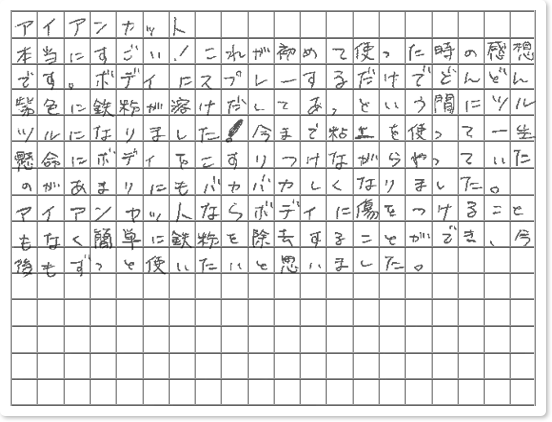 アイアンカット
本当にすごい！これが初めて使った時の感想
です。ボディにスプレーするだけでどんどん
紫色に鉄粉が溶けだしてあっという間にツル
ツルになりました！今まで粘土を使って一生
懸命にボディをこすりつけながらやっていた
のがあまりにもバカバカしくなりました。
アイアンカットならボディに傷をつけること
もなく簡単に鉄粉を除去することができ、今
後もずっと使いたいと思いました。